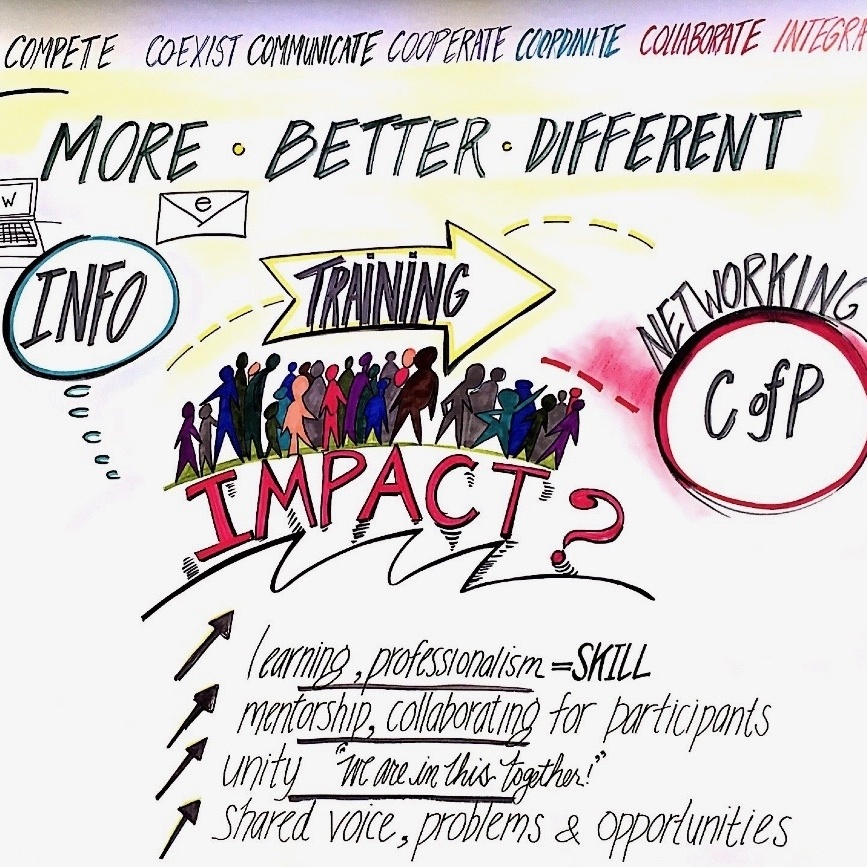 COMPETE COEXIST COMMUNICATE COOPERATE COORDINATE COLLABORATE INTEGRA
MORE • BETTER • DIFFERENT
W
e
INFO
TRAINING
NETWORKING
C of P
IMPACT?
learning, professionalism = SKILL
mentorship, collaborating for participants
unity "We are in this together!"
shared voice, problems & opportunities